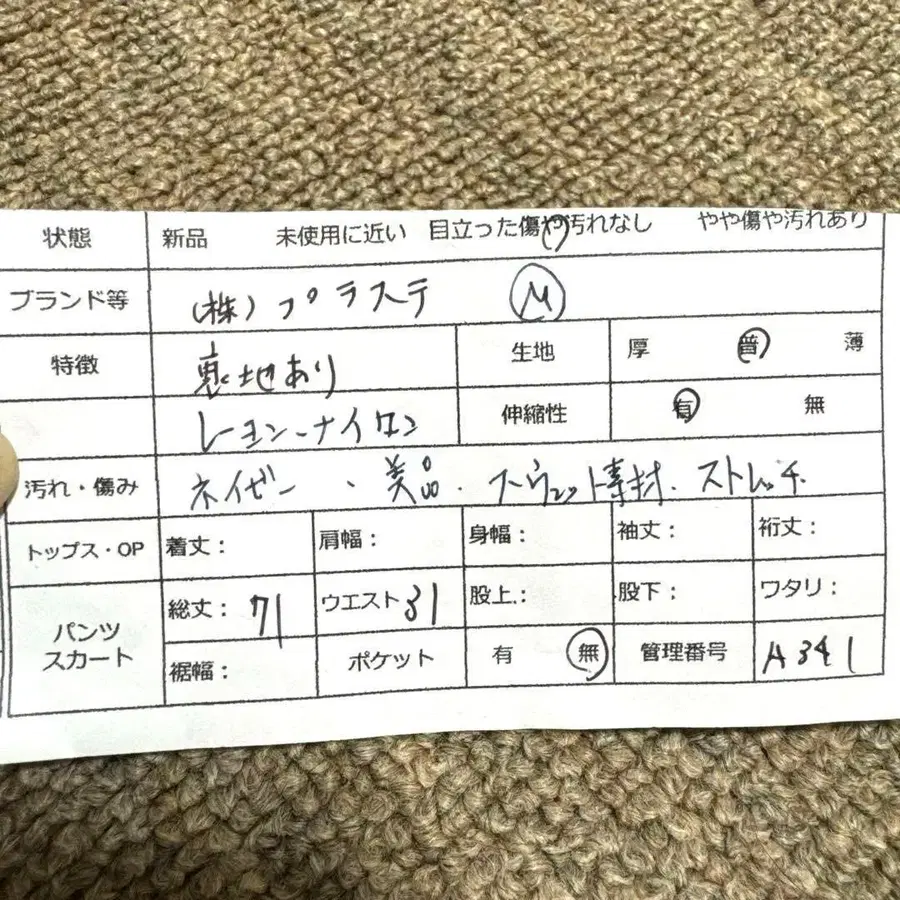 状態 新品 未使用に近い 目立った傷や汚れなし やや傷や汚れあり
ブランド等 (株)プラステ M
特徴 裏地あり 生地 厚 普 薄
レーヨン-ナイロン 伸縮性 有 無
汚れ・傷み ネイビー ・美品・スウェット素材・ストレッチ
トップス・OP 着丈: 肩幅: 身幅: 袖丈: 裄丈:
パンツ スカート 総丈: 71 ウエスト 31 股上: 股下: ワタリ:
裾幅: ポケット 有 無 管理番号 A341